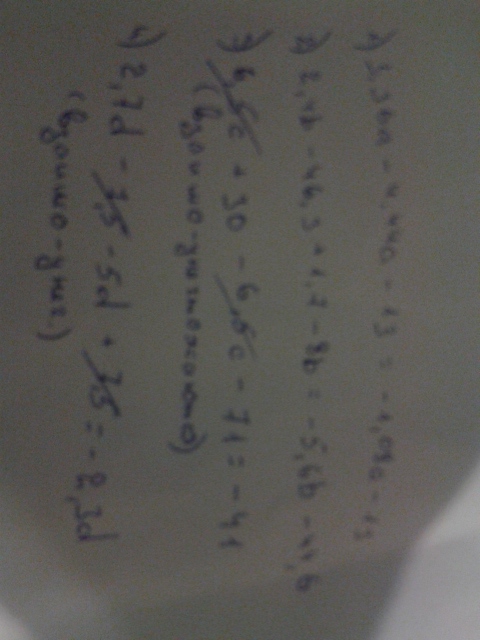 1) 3,36a - 4,44a - 13 = -1,08a - 13
2) 2,4b - 46,3 + 1,7 - 8b = -5,6b - 44,6
3) 6,5c + 30 - 6,5c - 71 = -41
(взаимо-уничтожено)
4) 2,7d - 7,5 - 5d + 7,5 = -2,3d
(взаимо-унич.)